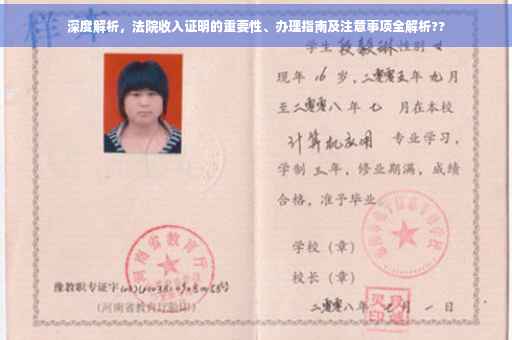 深度解析，法院收入证明的重要性、办理指南及注意事项全解析??
样本
学生段毅琳性别女
现年16岁，二零零五年九月
至二零零八年七 月在本校
计算机应用 专业学习，
学制三年，修业期满，成绩
合格，准予毕业
学校（章）
校长（章）
二零零八年七月一日
河南省教育厅
豫教职专证字
（河南省教育厅验印）